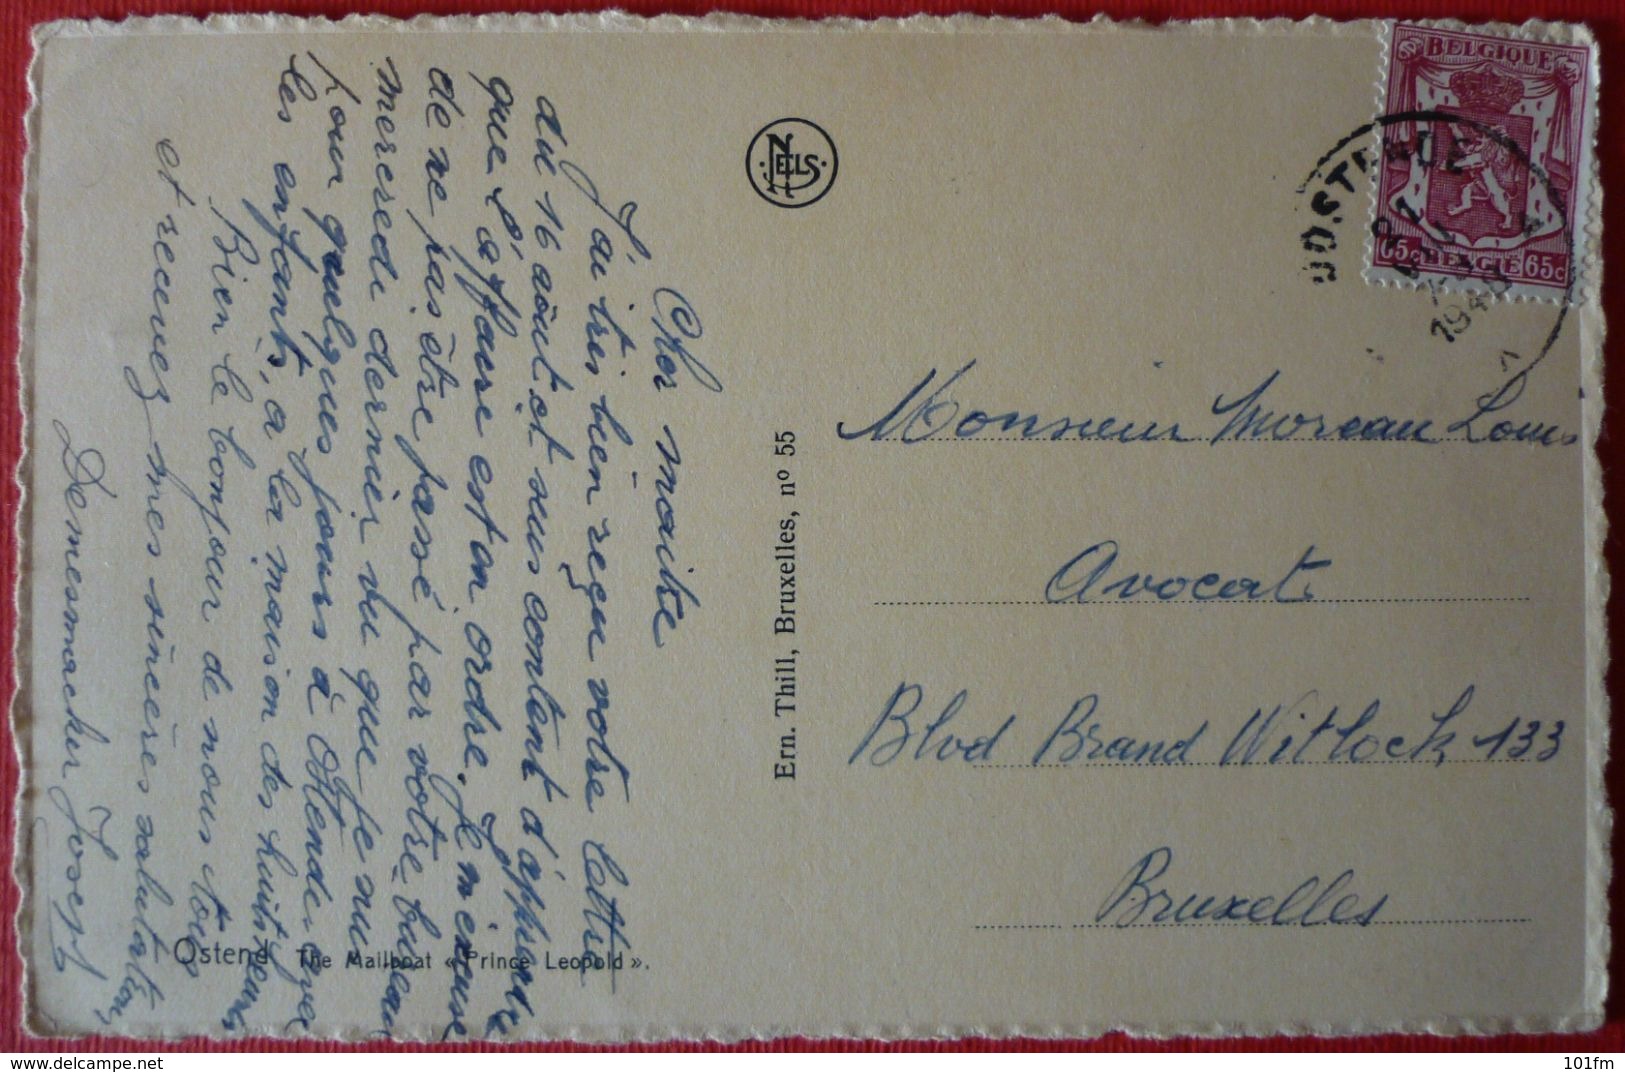 Cher maitre
J'ai très bien reçu votre lettre
du 16 août et suis content d'apprendre
que l'affaire est en ordre. Je m'excuse
de ne pas être passé par votre bureau
mercredi dernier vu que je suis
pour quelques jours à Ostende avec
les enfants, a la maison des huit heures
Bien le bonjour de nous tous
et recevez mes sincères salutations
Demesmacker Joseph
Ostend The Mailboat « Prince Leopold ».
NELS
Ern. Thill, Bruxelles, nº 55
BELGIQUE
65c BELGIE 65c
OOSTENDE
194
Monsieur Moreau Louis
Avocat
Blvd Brand Witlock, 133
Bruxelles
101fm